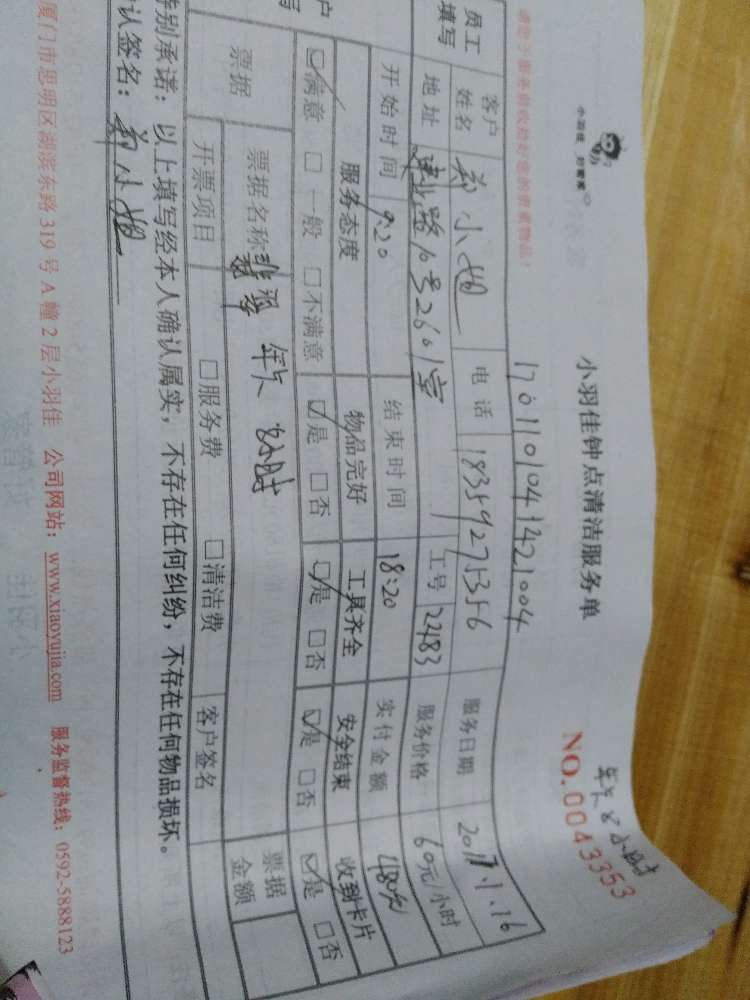 小羽佳 好管家
小羽佳钟点清洁服务单
NO.0043353
年卡 8小时
请您于服务前收拾好您的贵重物品!
1701101041421004
员工填写
客户姓名 郑小姐 电话 18359275356 服务日期 2017.1.16
地址 建业路10号2601室 工号 22483 服务价格 60元/小时
开始时间 9:20 结束时间 18:20 实付金额 480元
服务态度 物品完好 工具齐全 安全结束 收到卡片
☑满意 □一般 □不满意 ☑是 □否 ☑是 □否 ☑是 □否 ☑是 □否
票据 票据名称 年卡 8小时 票据金额
开票项目 □服务费 □清洁费 客户签名
特别承诺:以上填写经本人确认属实,不存在任何纠纷,不存在任何物品损坏。
认签名:郑小姐
厦门市思明区湖滨东路319号A幢2层小羽佳 公司网站:www.xiaoyujia.com 服务监督热线:0592-5888123